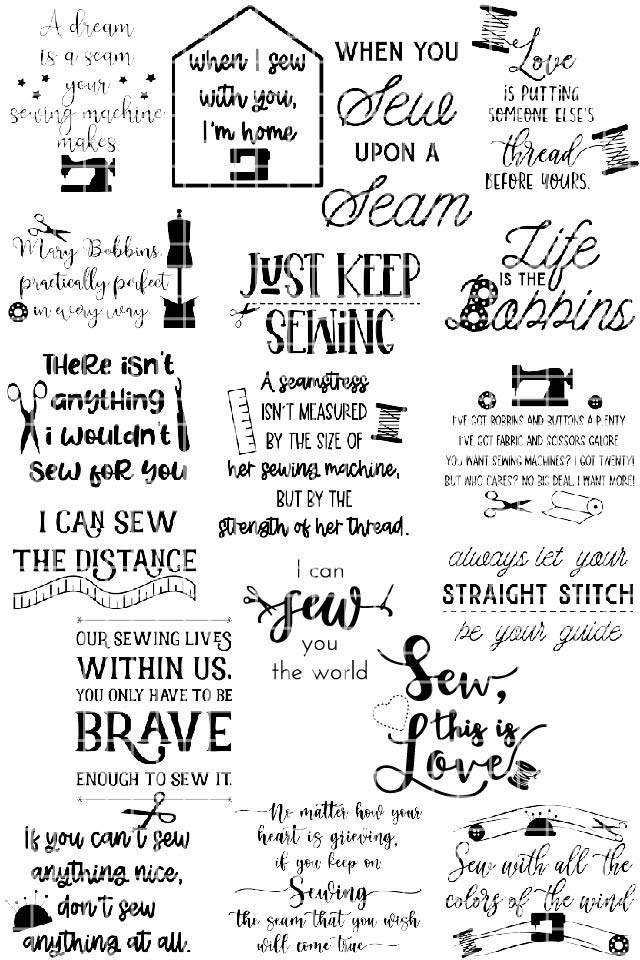 A dream
is a seam
your
sewing machine
makes
when I sew
with you,
I'm home
WHEN YOU
Sew
UPON A
Seam
Love
IS PUTTING
SOMEONE ELSE'S
thread
BEFORE YOURS.
Mary Bobbins,
practically perfect
in every way
JUST KEEP
SEWING
Life
IS THE
Bobbins
THERE isn't
anything
i wouldn't
sew for you
A seamstress
ISN'T MEASURED
BY THE SIZE OF
her sewing machine,
BUT BY THE
strength of her thread.
I'VE GOT BOBBINS AND BUTTONS A PLENTY
I'VE GOT FABRIC AND SCISSORS GALORE
YOU WANT SEWING MACHINES? I GOT TWENTY!
BUT WHO CARES? NO BIG DEAL. I WANT MORE!
I CAN SEW
THE DISTANCE
I can
sew
you
the world
always let your
STRAIGHT STITCH
be your guide
OUR SEWING LIVES
WITHIN US.
YOU ONLY HAVE TO BE
BRAVE
ENOUGH TO SEW IT.
Sew,
this is
Love
If you can't sew
anything nice,
don't sew
anything at all.
No matter how your
heart is grieving,
if you keep on
Sewing
the seam that you wish
will come true
Sew with all the
colors of the wind